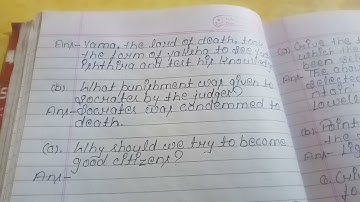 Ans- Yama, the lord of death, took
the form of yaksha to see Yu
dhisthira and test his knowled
(b) What punishment was given to
Socrates by the judges?
Ans- Socrates was condemned to
death.
(c). Why should we try to become
good citizens?
Ans-
(a) Give the
which th
been sel
Ans- The abov
selecte
tain'
Lowell
(b). Point
the
Ans- Lig